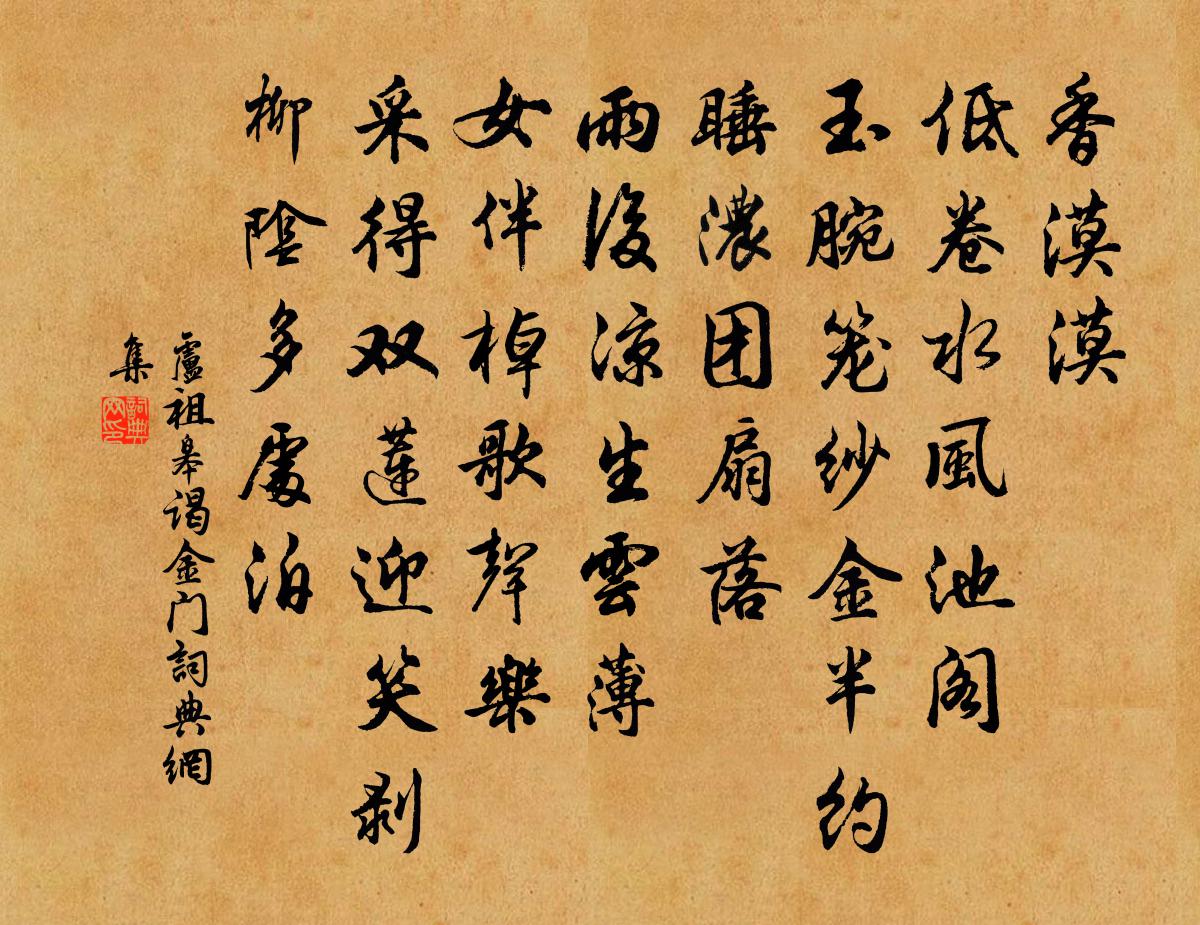 香漠漠
低卷水風池阁
玉腕笼纱金半约
睡濃团扇落
雨後凉生雲薄
女伴棹歌聲樂
采得双莲迎笑剥
柳陰多處泊
盧祖皋谒金门詞典網
集
詞典网印